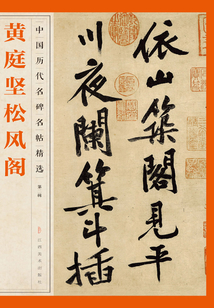 黄庭坚松风阁
中国历代名碑名帖精选
依山築閣見平
川夜闌箕斗插
江西美术出版社